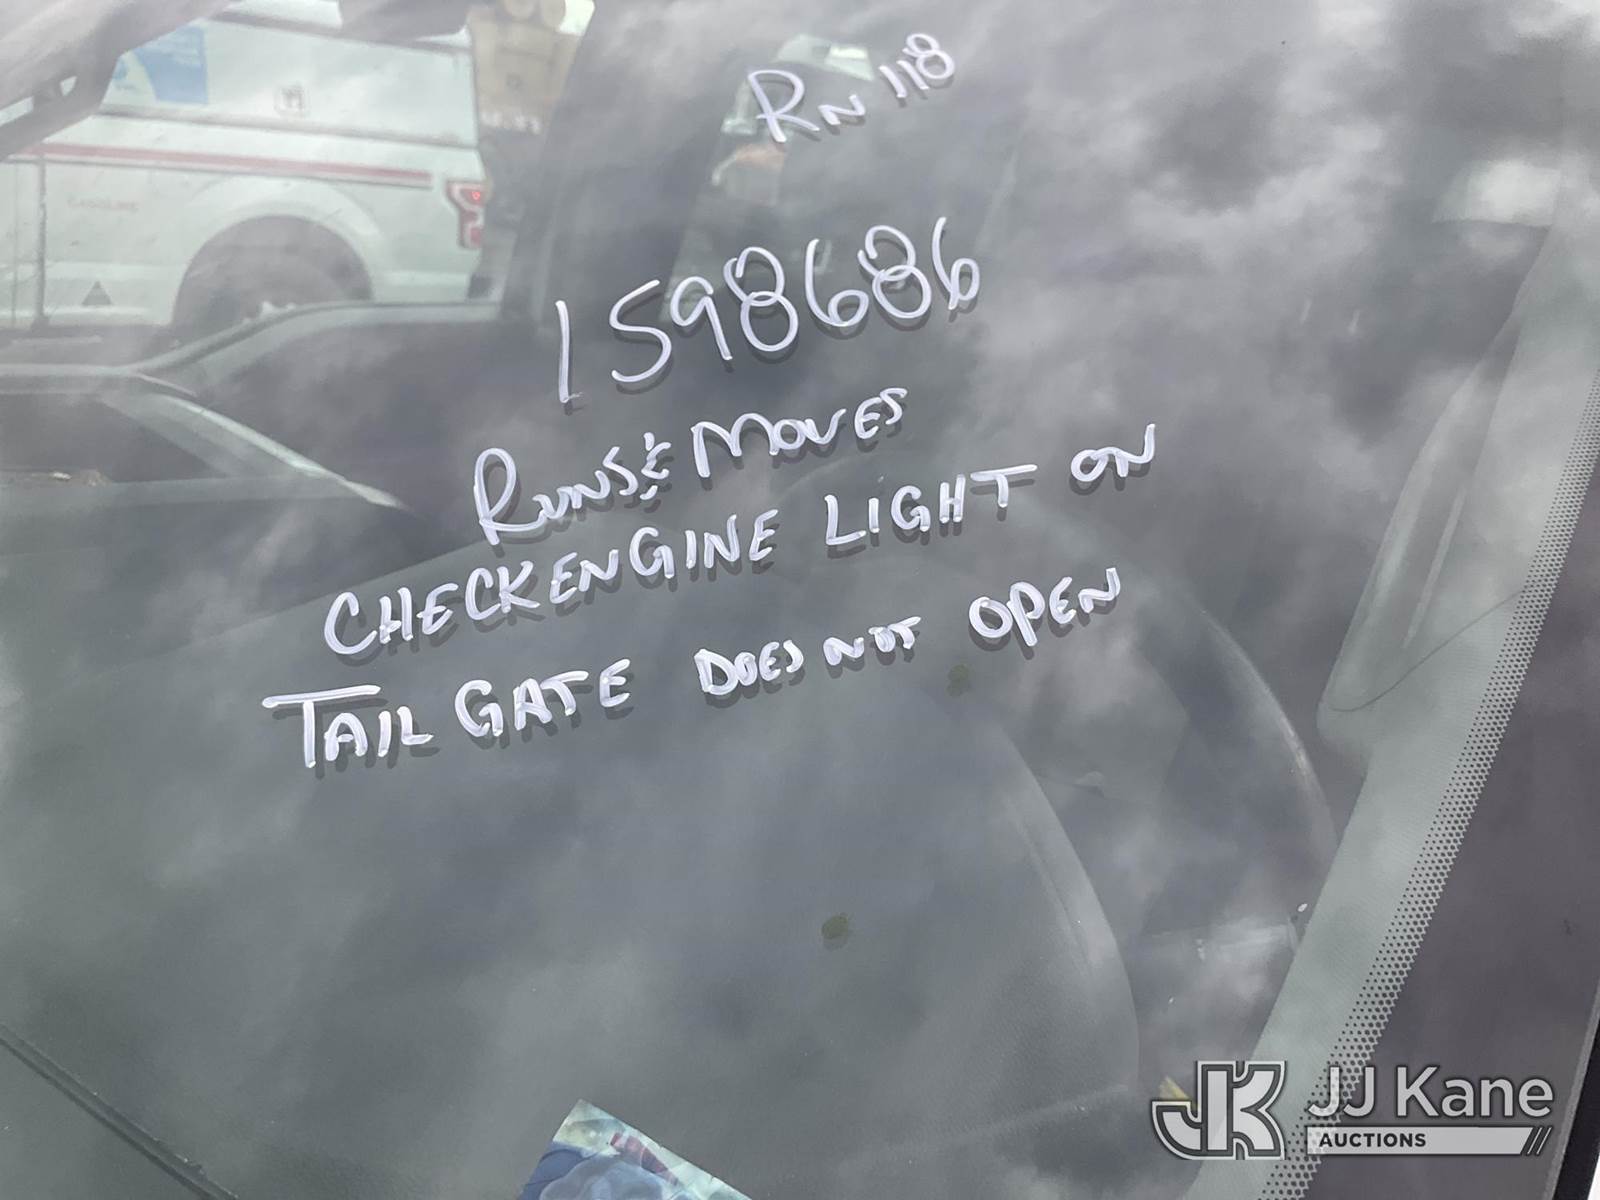 RN 118
1598686
RUNS & MOVES
CHECK ENGINE LIGHT ON
TAIL GATE DOES NOT OPEN
JK JJ Kane
AUCTIONS